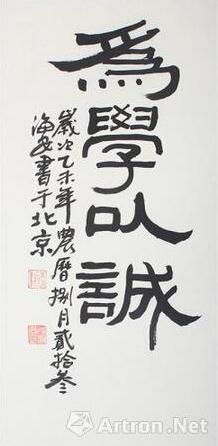 爲學以誠
歲次乙未年農曆捌月貳拾叁
書于北京
Artron.Net